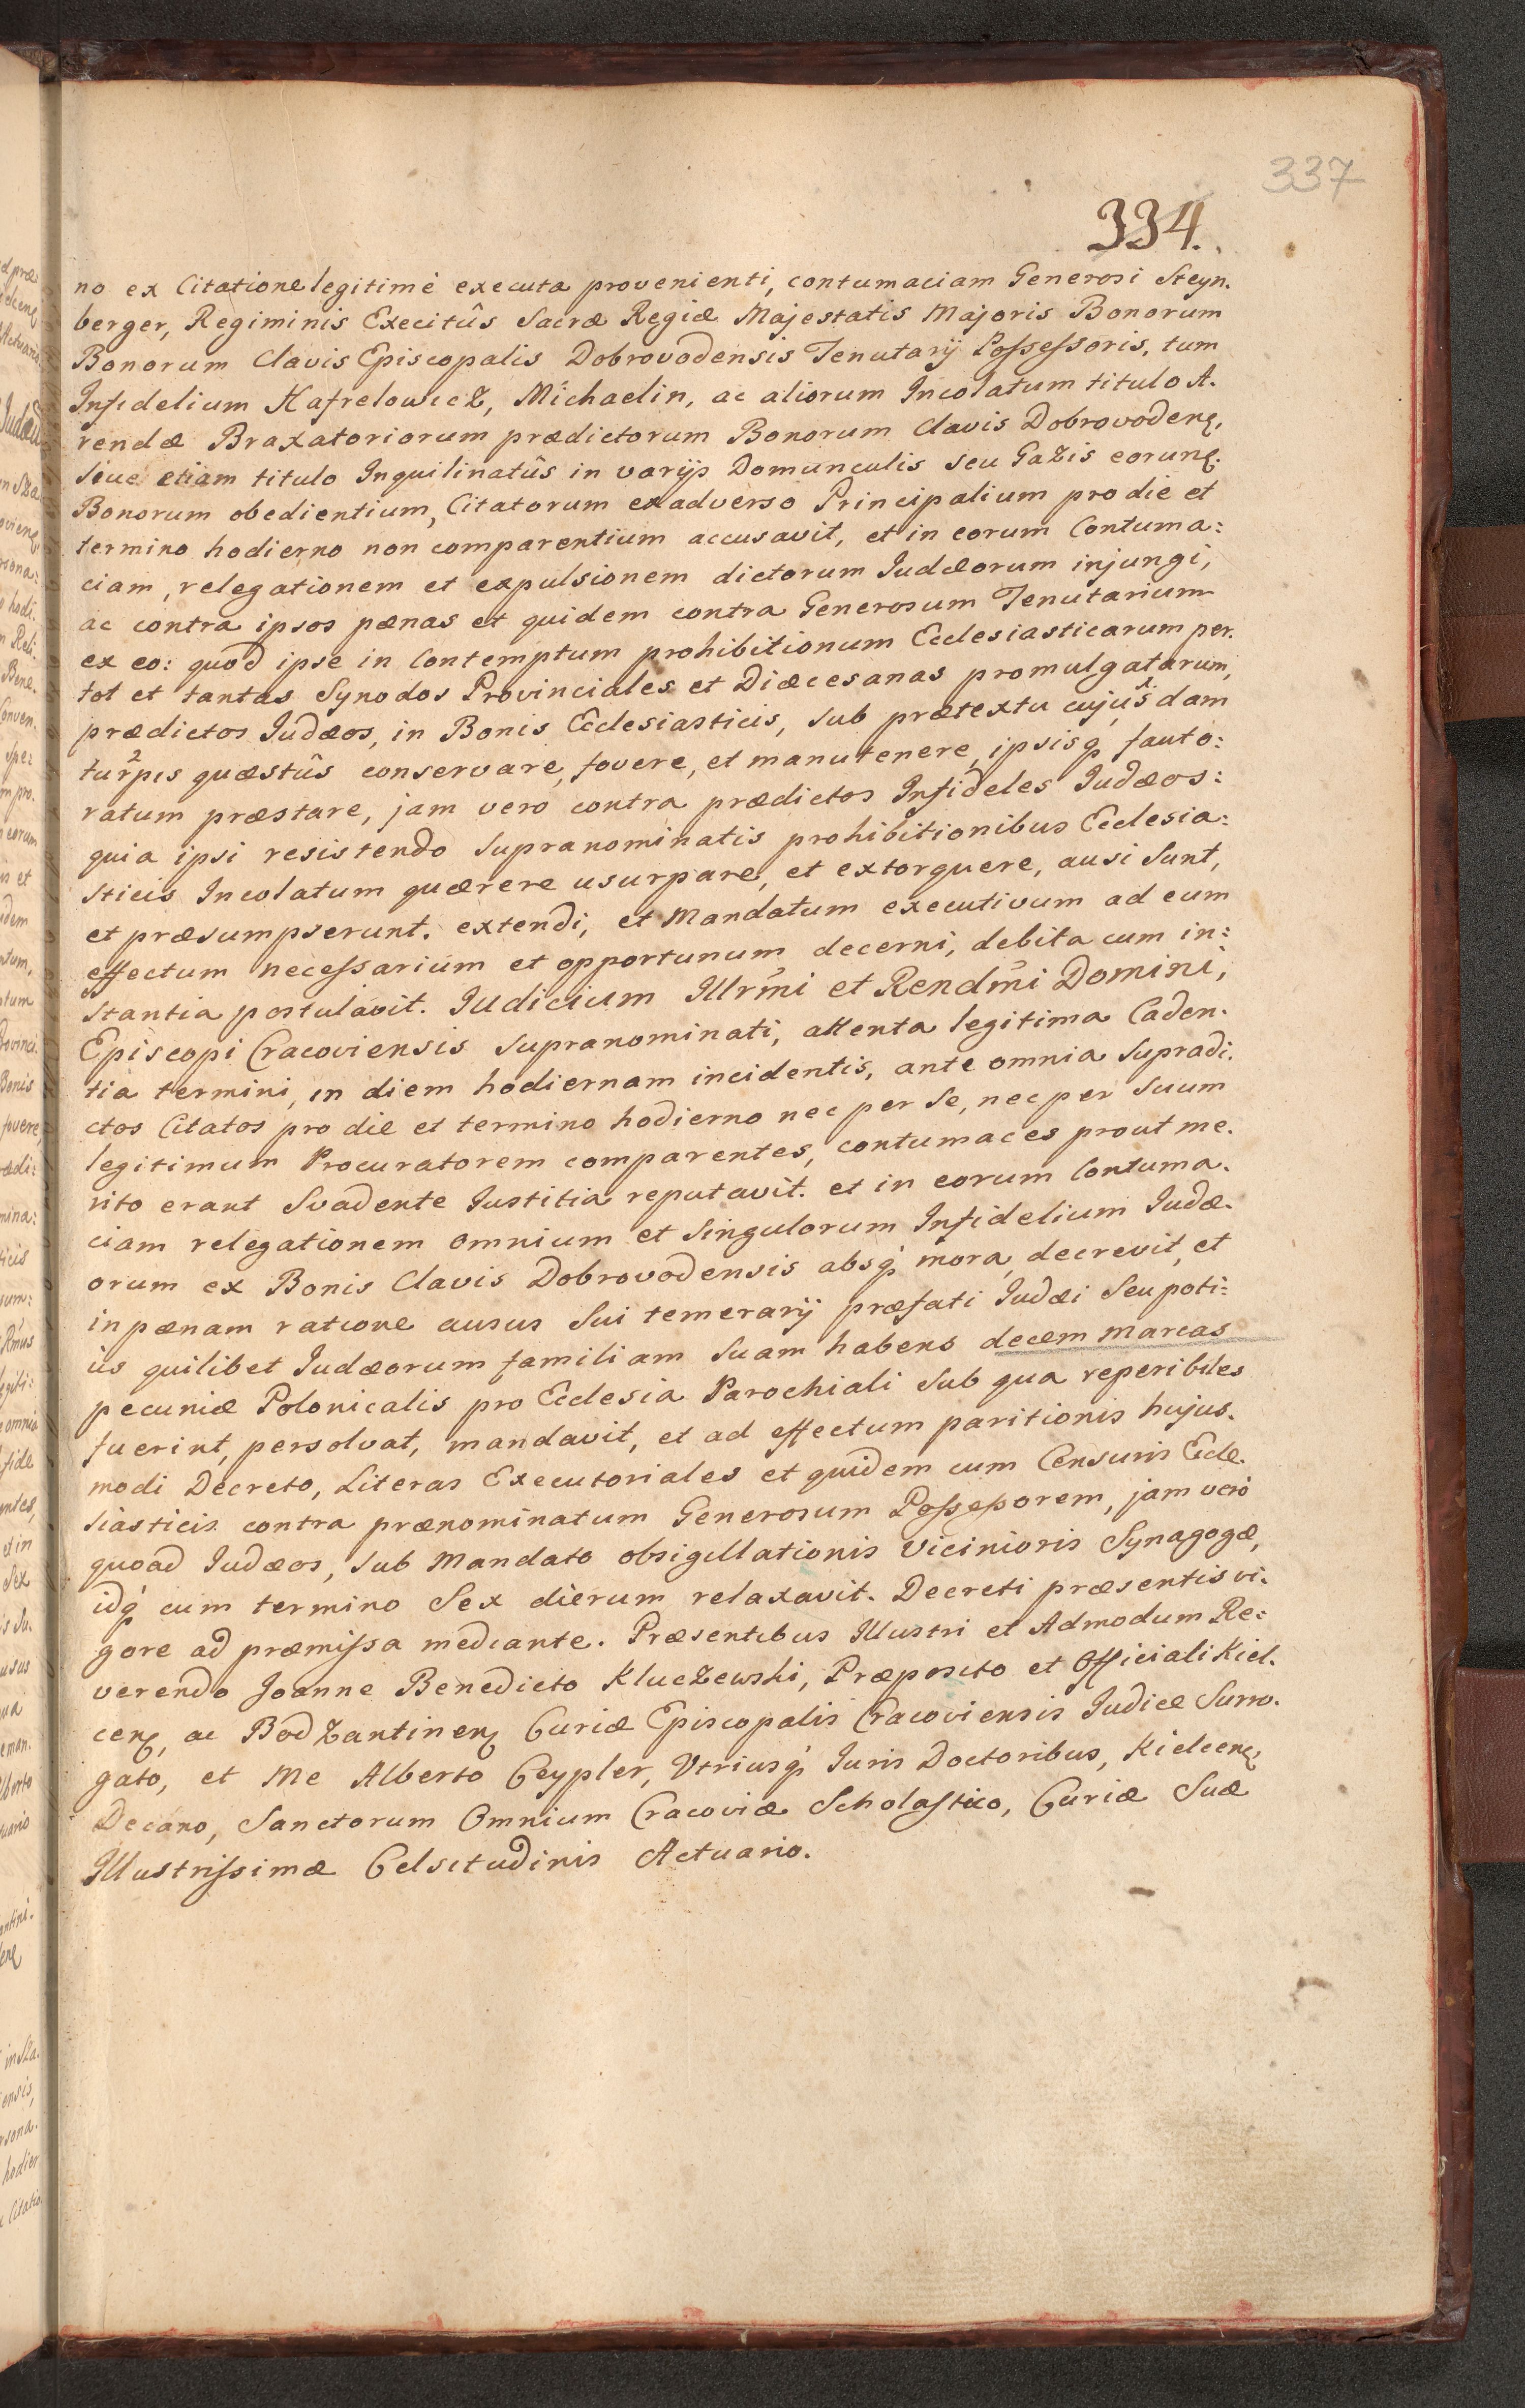 337
334.
no ex Citatione legitimè executa provenienti, contumaciam Generosi Steyn.
berger, Regiminis Execitûs Sacræ Regiæ Majestatis Majoris Bonorum
Bonorum Clavis Episcopalis Dobrovodensis Tenutarij Possessoris, tum
Infidelium Hafrelowicz, Michaelin, ac aliorum Incolatum titulo A.
rendæ Braxatoriorum prædictorum Bonorum Clavis Dobrovodenę,
siue etiam titulo Inquilinatûs in varijs Domunculis seu Gazis eorunę.
Bonorum obedientium, Citatorum ex adverso Principalium pro die et
termino hodierno non comparentium accusavit, et in eorum Contuma:
ciam, relegationem et expulsionem dictorum Iudæorum injungi,
ac contra ipsos pænas et quidem contra Generosum Tenutarium
ex eo: quod ipse in Contemptum prohibitionum Ecclesiasticarum per.
tot et tantas Synodos Provinciales et Diæcesanas promulgatarum,
prædictos Iudæos, in Bonis Ecclesiasticis, sub prætextu cujus dam
turpis quæstûs conservare, fovere, et manutenere, ipsisq́ fauto:
ratum præstare, jam vero contra prædictos Infideles Iudæos:
quia ipsi resistendo Supranominatis prohibitionibus Ecclesia:
sticis Incolatum quærere usurpare, et extorquere, ausi sunt,
et præsumpserunt. extendi, et Mandatum executivum ad eum
effectum necessarium et opportunum decerni, debita cum in:
stantia postulavit. Iudicium Illrm̃i et Rendm̃i Domini,
Episcopi Cracoviensis supranominati, attenta legitima Caden.
tia termini, in diem hodiernam incidentis, ante omnia supradi.
ctos Citatos pro die et termino hodierno nec per se, nec per suum
legitimum Procuratorem comparentes, contumaces prout me.
rito erant Svadente Iustitia reputavit. et in eorum Contuma.
ciam relegationem omnium et singulorum Infidelium Iudæ.
orum ex Bonis Clavis Dobrovodensis absq́ mora, decrevit, et
in pænam ratione ausus sui temerarij præfati Iudæi seu poti:
ùs quilibet Iudæorum familiam suam habens decem marcas
pecuniæ Polonicalis pro Ecclesia Parochiali sub qua reperibiles
fuerint, persolvat, mandavit, et ad effectum paritionis hujus.
modi Decreto, Literas Executoriales et quidem cum Censuris Eccle.
siasticis contra prænominatum Generosum Possessorem, jam verò
quoad Iudæos, sub Mandato obsigillationis vicinioris Synagogæ,
idq́ cum termino Sex dierum relaxavit. Decreti præsentis vi.
gore ad præmissa mediante. Præsentibus Illustri et Admodum Re:
verendo Joanne Benedicto Kluczewski, Præposito et Officiali Kiel.
cenę, ac Bodzantinenę Curiæ Episcopalis Cracoviensis Iudice Surro.
gato, et Me Alberto Ceypler, Utriusq́ Iuris Doctoribus, Kielcenę,
Decano, Sanctorum Omnium Cracoviæ Scholastico, Curiæ Suæ
Illustrissimæ Celsitudinis Actuario.